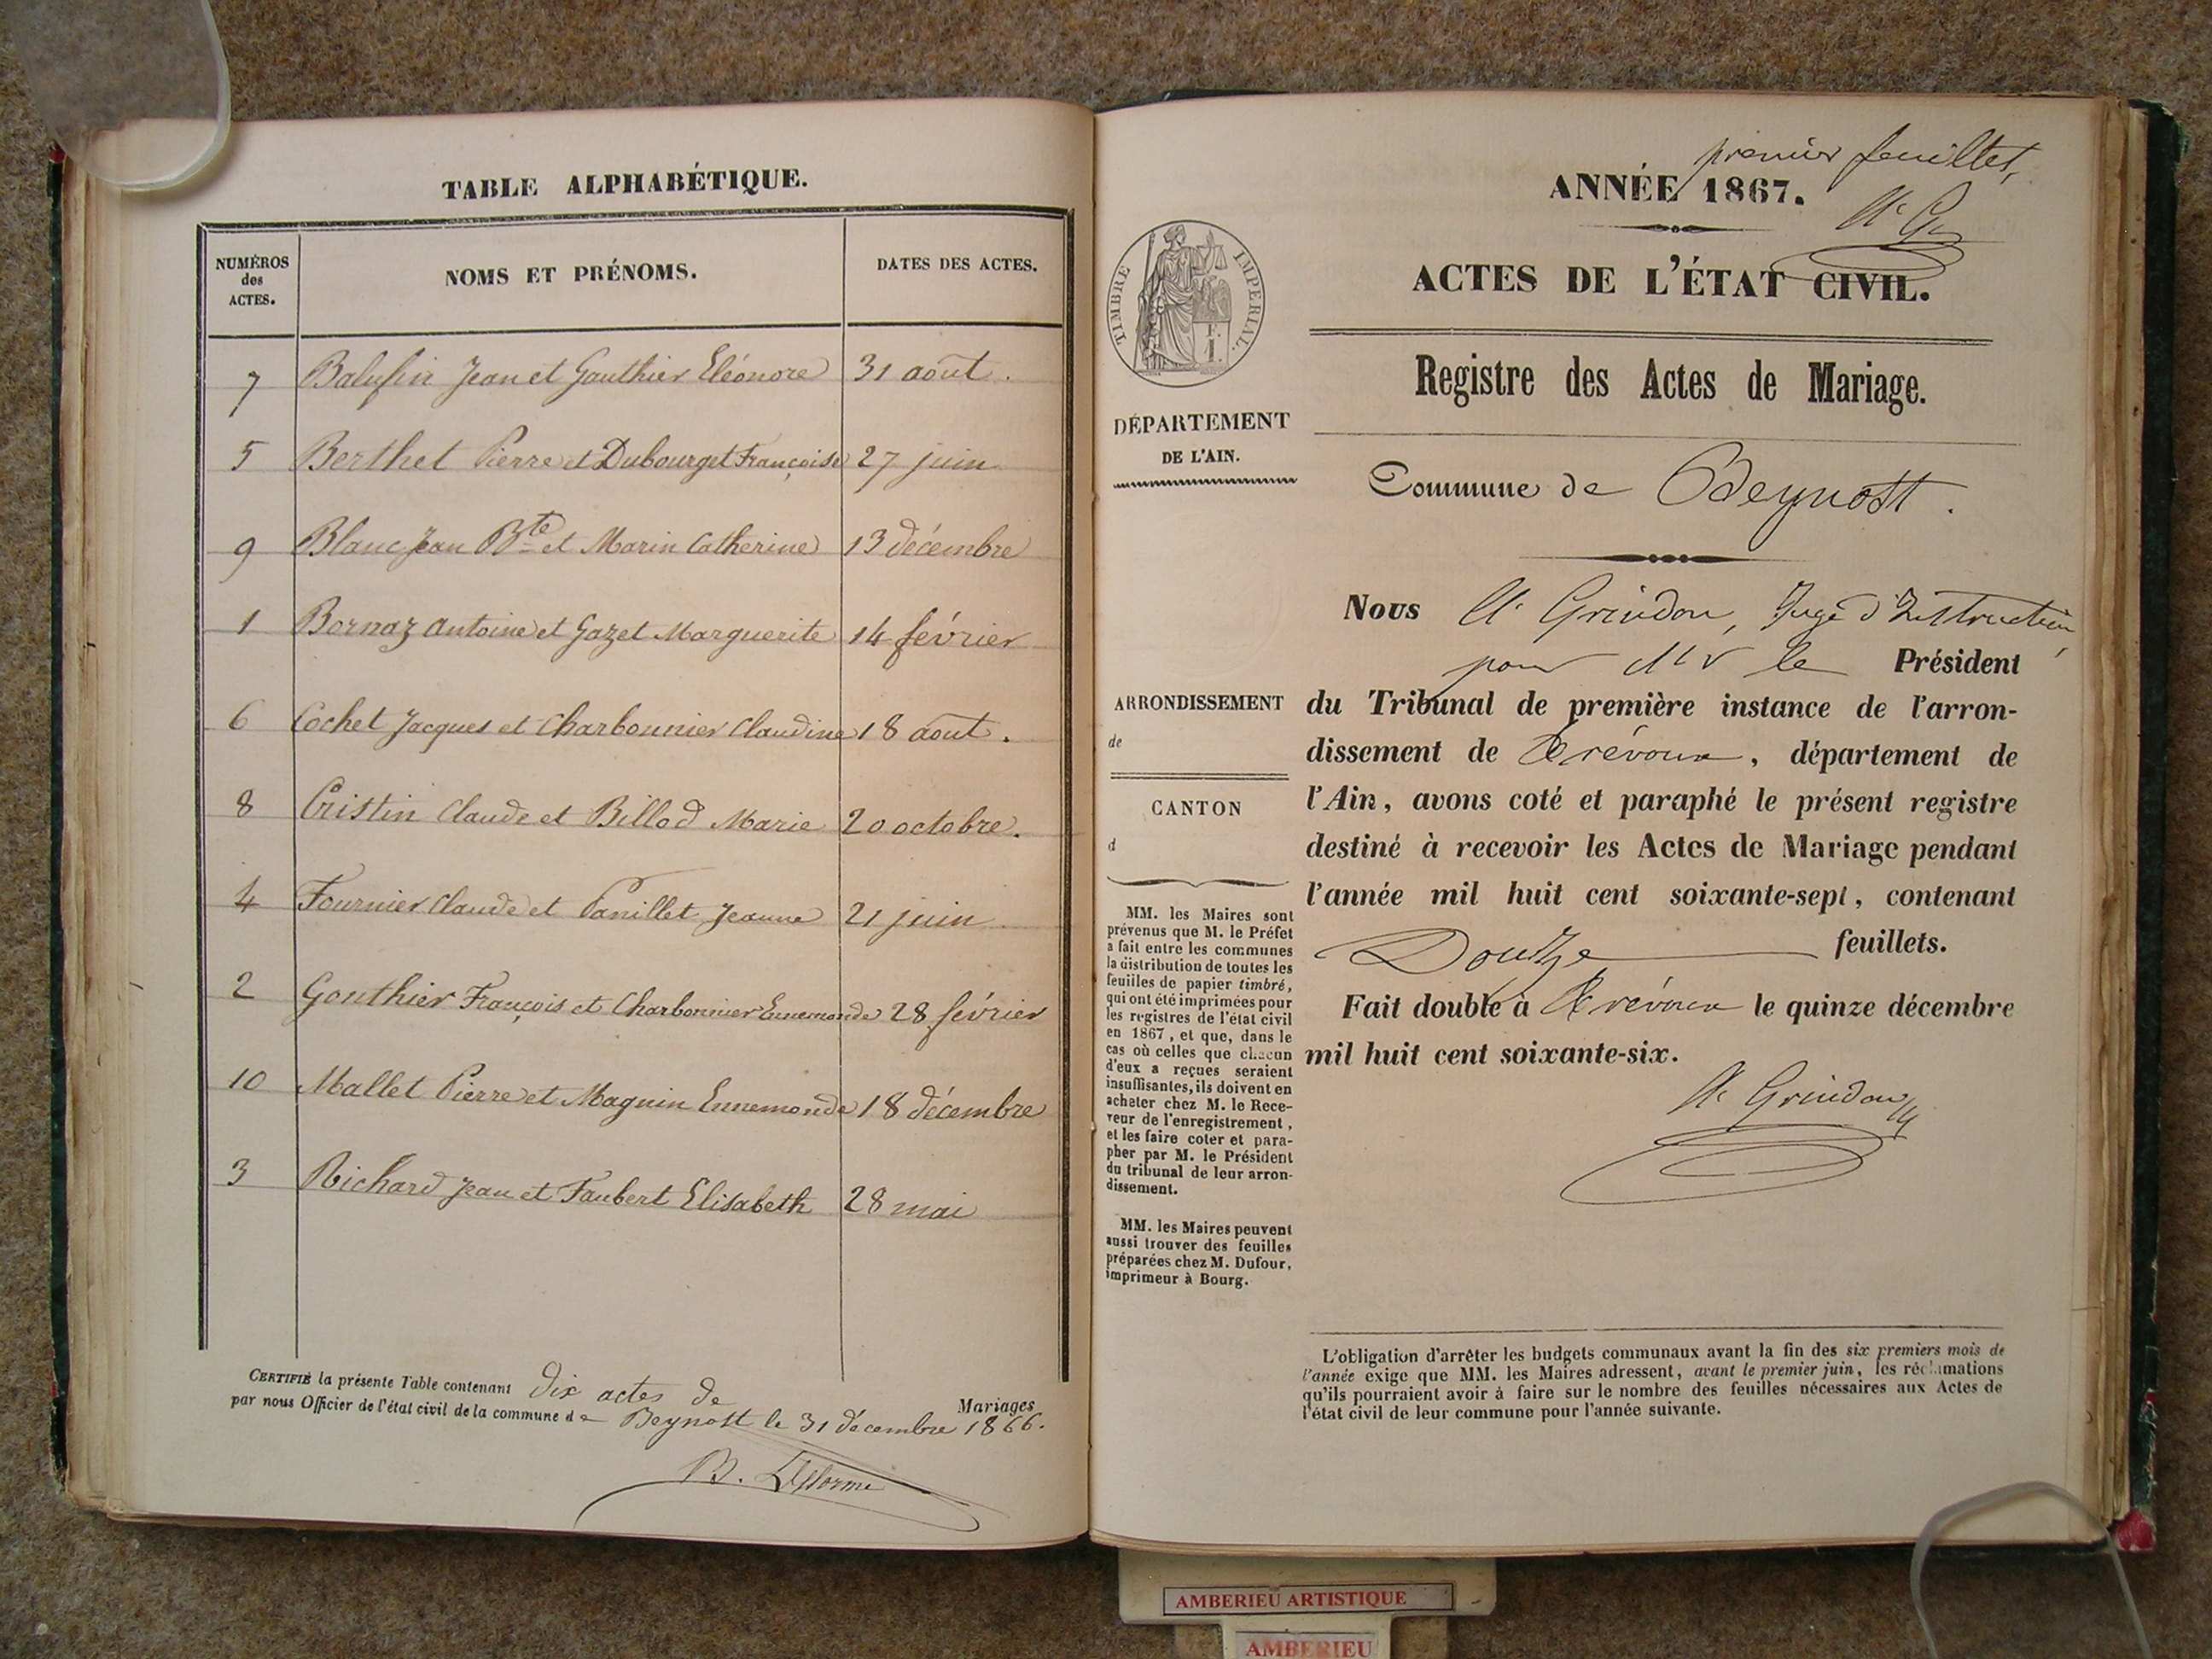 TABLE ALPHABÉTIQUE.
NUMÉROS des ACTES.
NOMS ET PRÉNOMS.
DATES DES ACTES.
7 Jean et Gauthier Eléonore 31 août.
5 Berthet Pierre et Dubourget Françoise 27 juin
9 Blanc Jean Bte et Marin Catherine 13 décembre
1 Bornaz Antoine et Gazet Marguerite 14 février
6 Cochet Jacques et Charbonnier Claudine 18 août.
8 Cristin Claude et Billod Marie 20 octobre.
4 Fournier Claude et Panillet Jeanne 21 juin
2 Gonthier François et Charbonnier Ennemonde 28 février
10 Mallet Pierre et Magnin Ennemonde 18 décembre
3 Richard Jean et Faubert Elisabeth 28 mai
CERTIFIÉ la présente Table contenant dix actes de Mariages
par nous Officier de l'état civil de la commune de Beynost le 31 décembre 1866.
premier feuillet,
ANNÉE 1867.
ACTES DE L'ÉTAT CIVIL.
Registre des Actes de Mariage.
TIMBRE IMPÉRIAL.
DÉPARTEMENT
DE L'AIN.
Commune de Beynost.
Nous Grindon, Juge d'Instruction,
pour Mr le Président
ARRONDISSEMENT
de
CANTON
d
du Tribunal de première instance de l'arron-
dissement de Trévoux, département de
l'Ain, avons coté et paraphé le présent registre
destiné à recevoir les Actes de Mariage pendant
l'année mil huit cent soixante-sept, contenant
Douze feuillets.
Fait double à Trévoux le quinze décembre
mil huit cent soixante-six.
Grindon
MM. les Maires sont
prévenus que M. le Préfet
a fait entre les communes
la distribution de toutes les
feuilles de papier timbré,
qui ont été imprimées pour
les registres de l'état civil
en 1867, et que, dans le
cas où celles que chacun
d'eux a reçues seraient
insuffisantes, ils doivent en
acheter chez M. le Rece-
veur de l'enregistrement,
et les faire coter et para-
pher par M. le Président
du tribunal de leur arron-
dissement.
MM. les Maires peuvent
aussi trouver des feuilles
préparées chez M. Dufour,
imprimeur à Bourg.
L'obligation d'arrêter les budgets communaux avant la fin des six premiers mois de
l'année exige que MM. les Maires adressent, avant le premier juin, les réclamations
qu'ils pourraient avoir à faire sur le nombre des feuilles nécessaires aux Actes de
l'état civil de leur commune pour l'année suivante.
AMBERIEU ARTISTIQUE
AMBERIEU